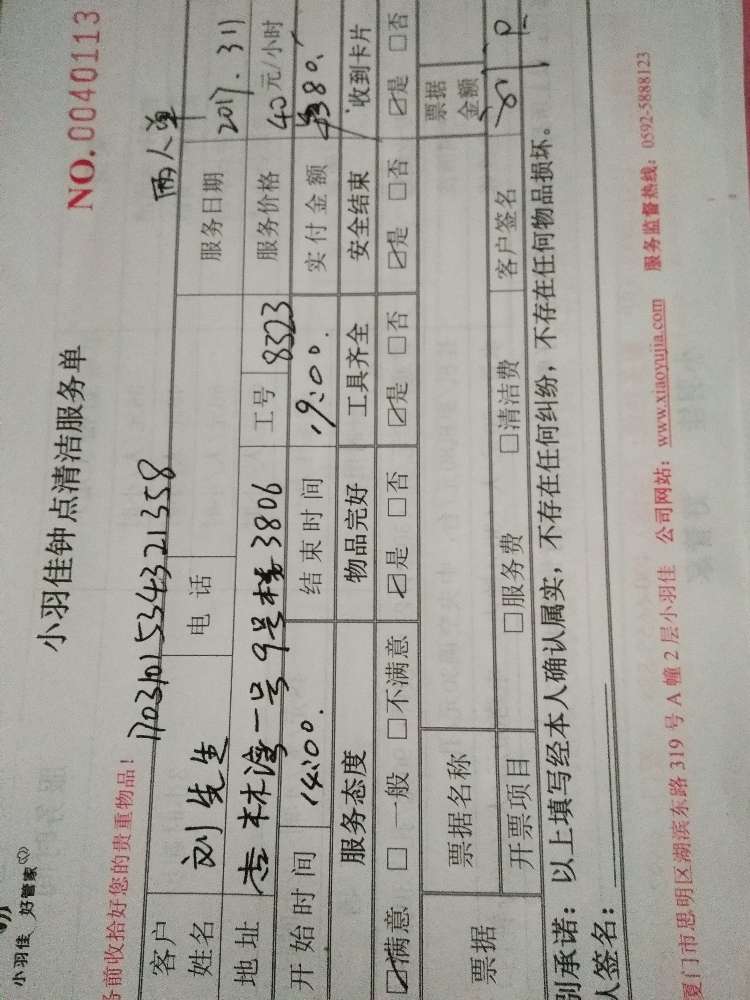 小羽佳 好管家
小羽佳钟点清洁服务单
NO.0040113
务前收拾好您的贵重物品!
17031015344321358
两人单
客户姓名 刘先生 电话 服务日期 2017.3.11
地址 杏林湾一号9号楼3806 工号 8323 服务价格 40元/小时
开始时间 14:00. 结束时间 19:00. 实付金额 380.
服务态度 物品完好 工具齐全 安全结束 收到卡片
☑满意 □一般 □不满意 ☑是 □否 ☑是 □否 ☑是 □否 ☑是 □否
票据 票据名称 票据金额
开票项目 □服务费 □清洁费 客户签名
别承诺:以上填写经本人确认属实,不存在任何纠纷,不存在任何物品损坏。
人签名:
厦门市思明区湖滨东路 319 号 A 幢 2 层小羽佳 公司网站:www.xiaoyujia.com 服务监督热线:0592-5888123